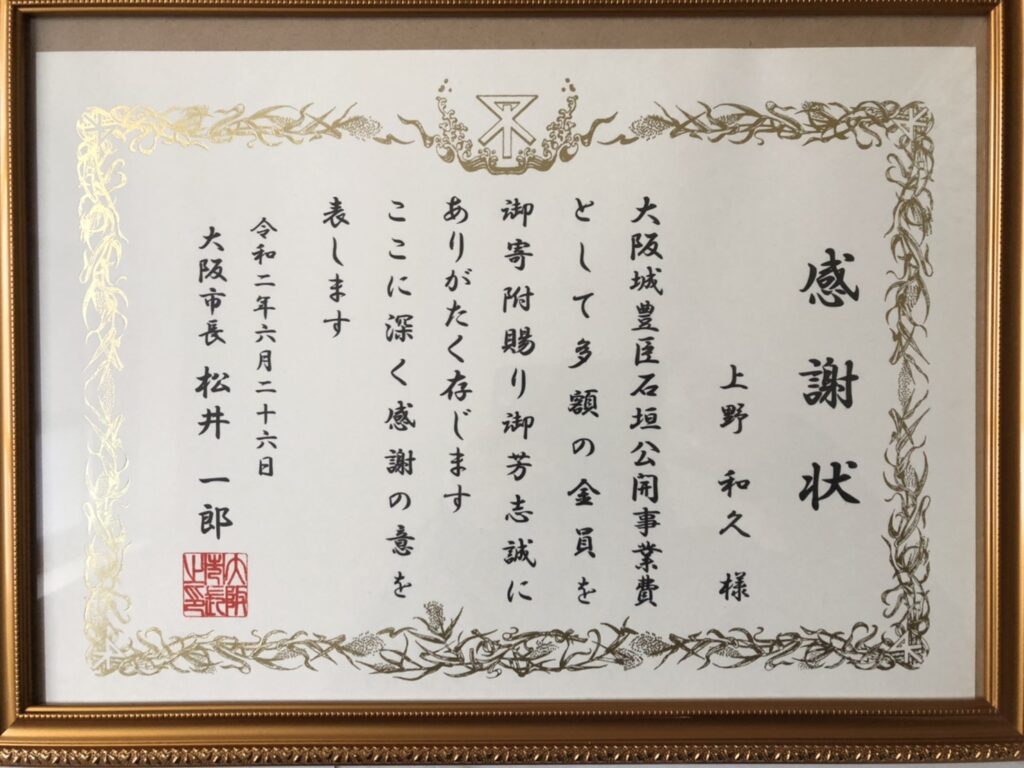 感謝状
上野 和久 様
大阪城豊臣石垣公開事業費
として多額の金員を
御寄附賜り御芳志誠に
ありがたく存じます
ここに深く感謝の意を
表します
令和二年六月二十六日
大阪市長 松井 一郎
大阪
市長
之印